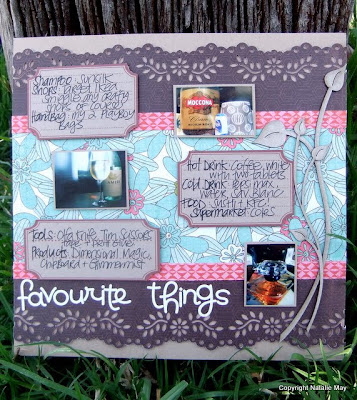 Shampoo: Sunsilk
Shops: Target, Ikea
Smiggle any crafty
store of course!
Handbag: my 2 Playboy
Bags
MOCCONA
Classic
Hot Drink: Coffee, white
with two tablets
Cold Drink: Pepsi max,
water, Sav Blanc
Food: Sushi + KFC,
supermarket cakes
Tools: craft knife, Tim Scissors
tape + Art Glue
Products: Dimensional Magic,
Chipboard + Glimmermist
favourite things
Copyright Natalie May